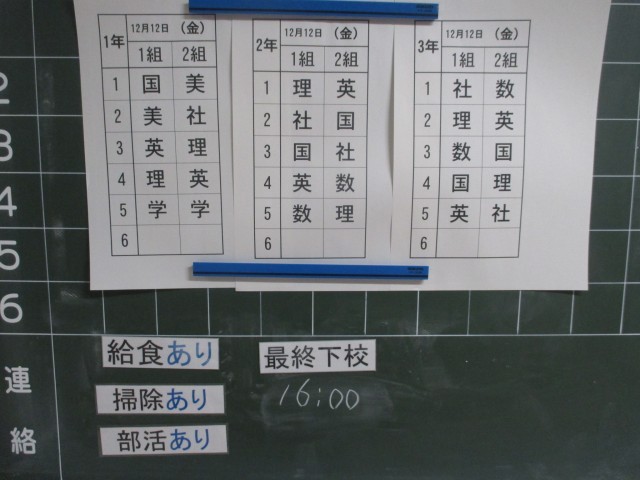 1年 12月12日 （金）
1組 2組
1 国 美
2 美 社
3 英 理
4 理 英
5 学 学
6
2年 12月12日 （金）
1組 2組
1 理 英
2 社 国
3 国 社
4 英 数
5 数 理
6
3年 12月12日 （金）
1組 2組
1 社 数
2 理 英
3 数 国
4 国 理
5 英 社
6
2
3
4
5
6
連絡
給食あり
掃除あり
部活あり
最終下校
16:00